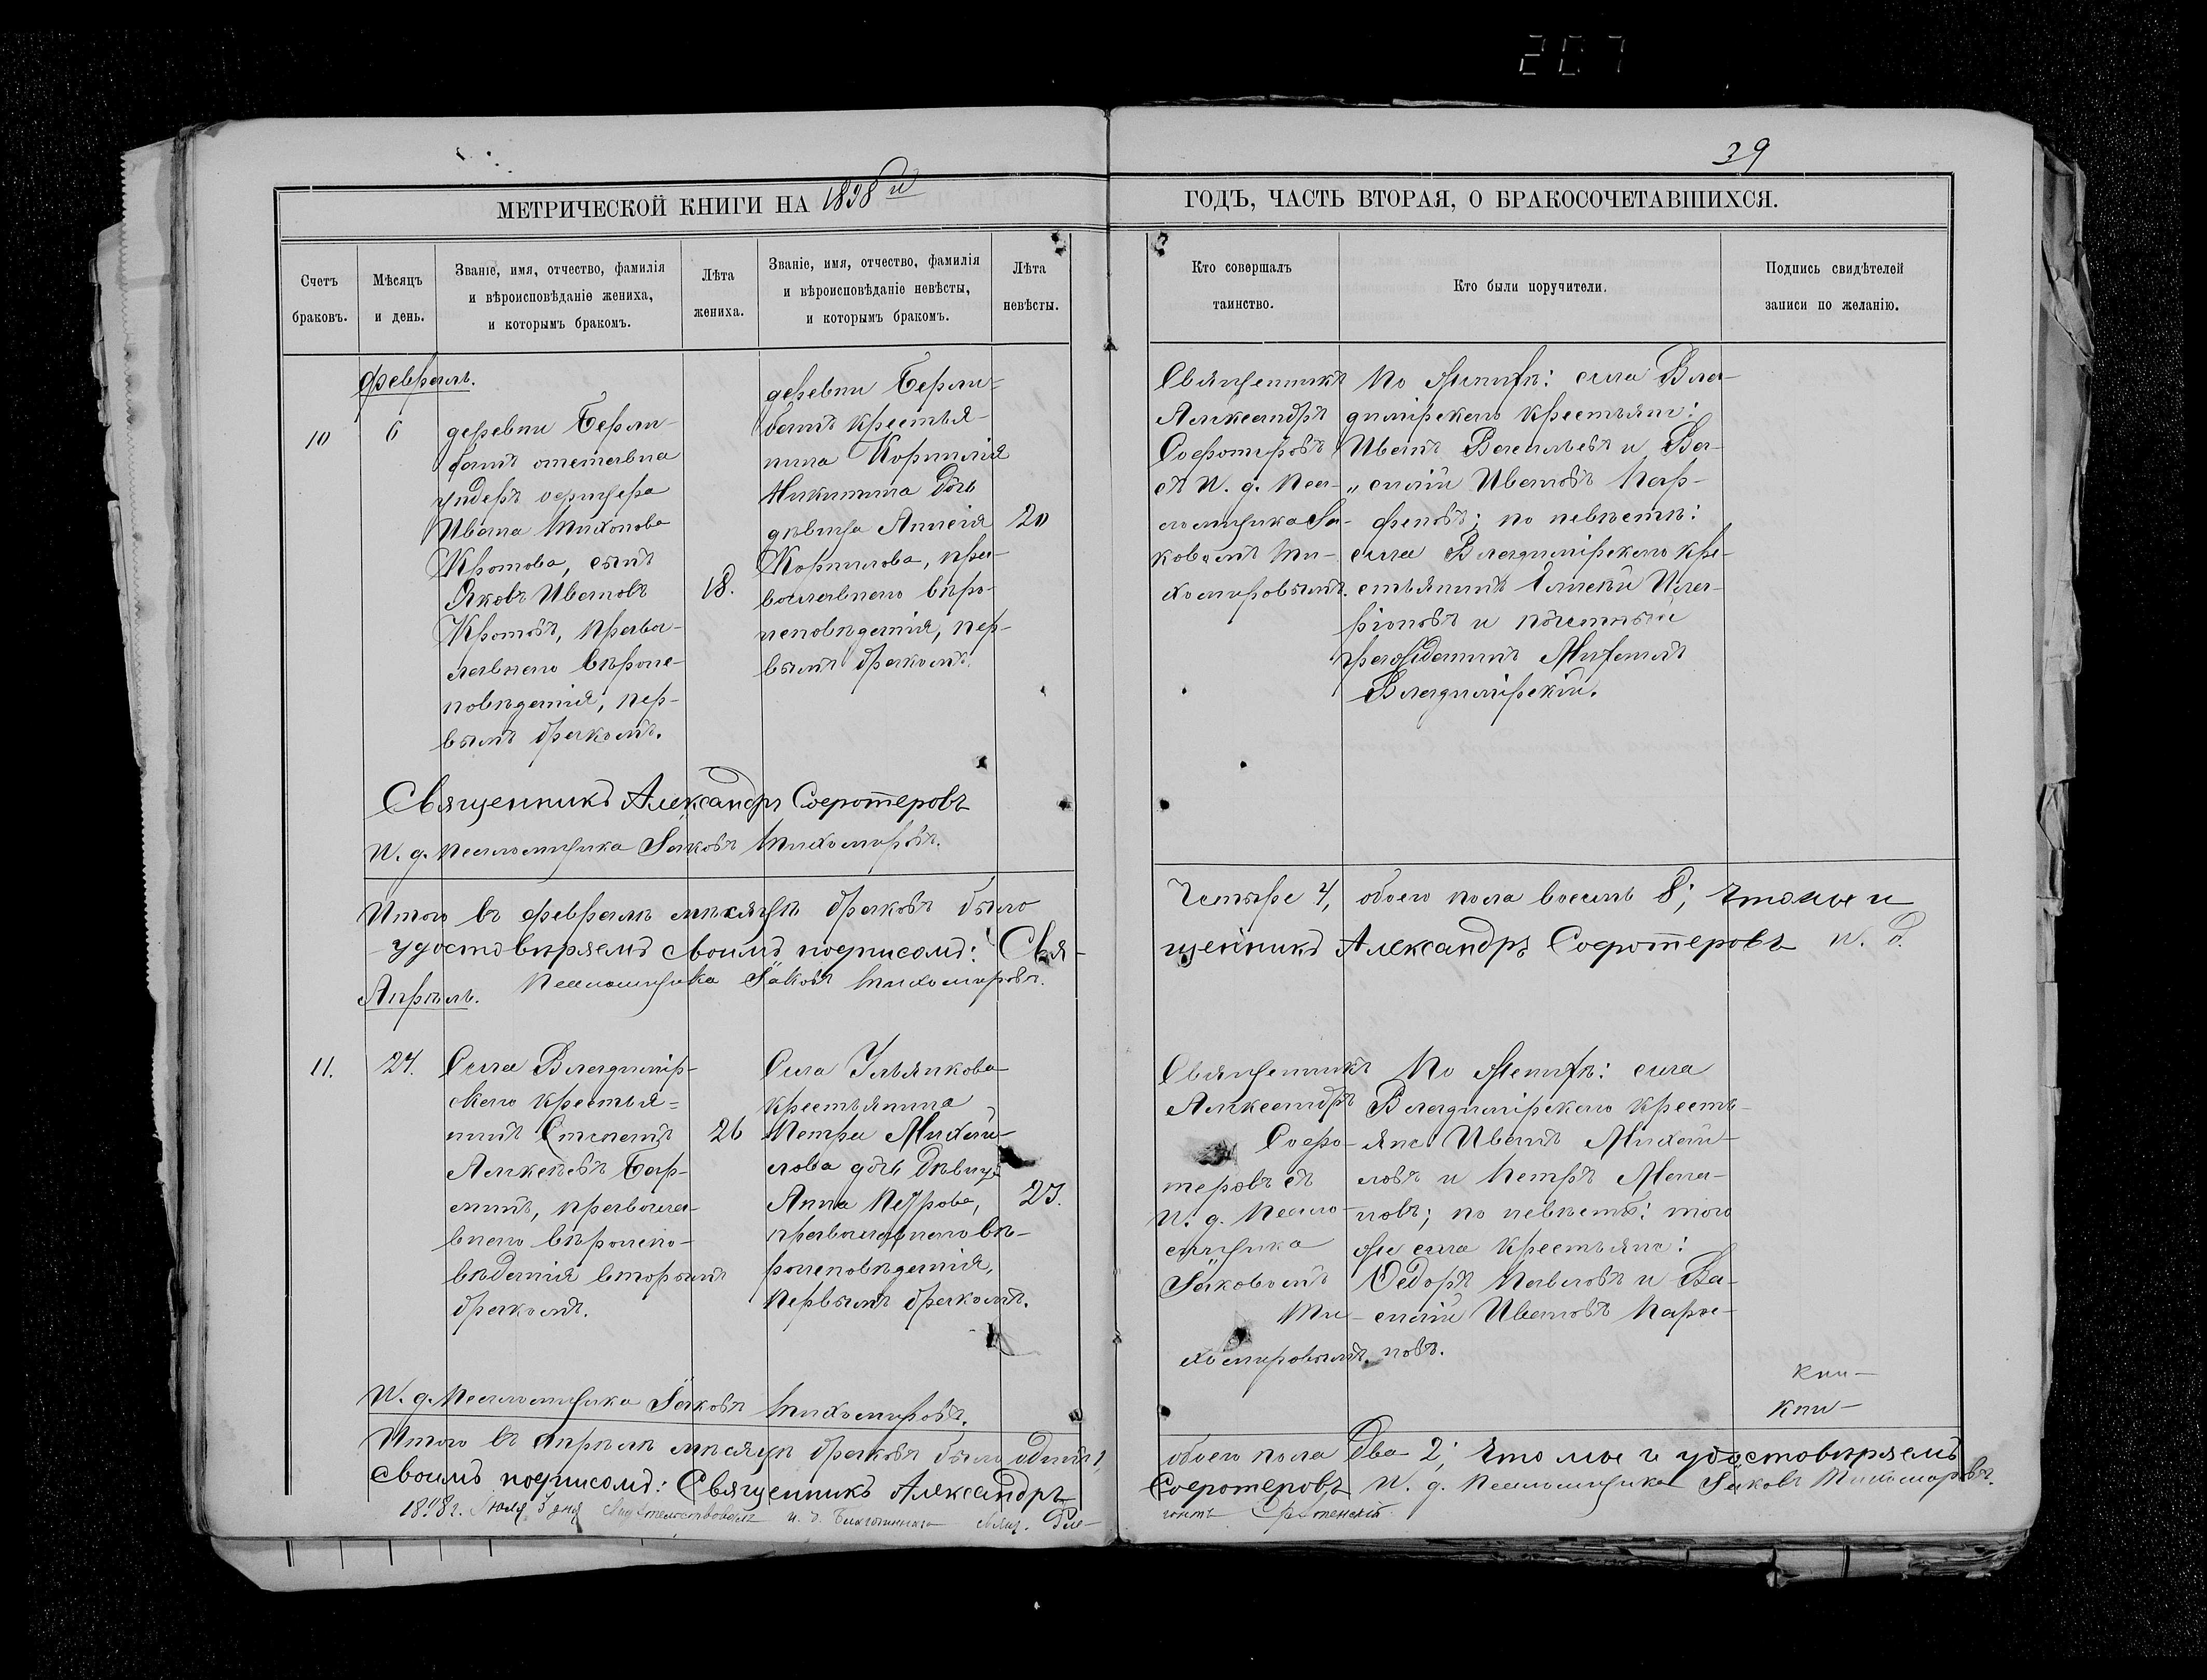 207
39
МЕТРИЧЕСКОЙ КНИГИ НА 1898й
ГОДЪ, ЧАСТЬ ВТОРАЯ, О БРАКОСОЧЕТАВШИХСЯ.
Счетъ
браковъ.
Мѣсяцъ
и день.
Званіе, имя, отчество, фамилія
и вѣроисповѣданіе жениха,
и которымъ бракомъ.
Лѣта
жениха.
Званіе, имя, отчество, фамилія
и вѣроисповѣданіе невѣсты,
и которымъ бракомъ.
Лѣта
невѣсты.
Кто совершалъ
таинство.
Кто были поручители.
Подпись свидѣтелей
записи по желанію.
Февраль.
10
6
деревни
отставна
ундеръ офицера
Ивана Тихонова
Кротова, сынъ
Яковъ Ивановъ
Кротовъ, Право-
славнаго вѣроис-
повѣданія, пер-
вымъ бракомъ.
18.
деревни
крестья-
нина Корнилія
Никитина дочь
дѣвица Анисія
Корнилова, пра-
вославнаго вѣро-
исповѣданія, пер-
вымъ бракомъ.
20
Священникъ
Александръ
Софотеровъ
съ И. д. Пса-
ломщика Іа-
ковомъ Ти-
хомировымъ.
По женихѣ: села Вла-
димірскаго крестьяне:
Иванъ Васильевъ и Ва-
„ силій Ивановъ Пар-
феновъ; по невѣстѣ:
села Владимірскаго кре-
стьянинъ Алексѣй Ила-
ріоновъ и почетный
гражданинъ Михаилъ
Владимірскій.
Священникъ Александръ Софотеровъ
И. д. Псаломщика Іаковъ Тихомировъ.
Итого въ февралѣ мѣсяцѣ браковъ было
Четыре 4, обоего пола восемь 8; что мы и
удостовѣряемъ своимъ подписомъ: Свя-
щенникъ Александръ Софотеровъ И. д.
Псаломщика Іаковъ Тихомировъ.
Апрѣль.
11.
24.
Села Владимір-
скаго крестья-
нинъ Степанъ
Алексѣевъ Бар-
минъ, православ-
внаго вѣроиспо-
вѣданія вторымъ
бракомъ.
26
Села Ульянкова
крестьянина
Петра Михай-
лова дочь дѣвица
Анна Петрова,
православнаго вѣ-
роисповѣданія,
первымъ бракомъ.
23.
Священникъ
Александръ
Софо-
теровъ съ
И. д. Псало-
мщика
Іаковомъ
Ти-
хомировымъ.
По женихѣ: села
Владимірскаго кресть-
яне Иванъ Михай-
ловъ и Петръ
новъ; по невѣстѣ: того
же села крестьяне:
Ѳедоръ Павловъ и Ва-
силій Ивановъ Парфе-
новъ.
кни-
кни-
И. д. Псаломщика Іаковъ Тихомировъ.
Итого въ апрѣлѣ мѣсяцѣ браковъ было одинъ 1,
обоего пола два 2; что мы и удостовѣряемъ
своимъ подписомъ: Священникъ Александръ
Софотеровъ И. д. Псаломщика Іаковъ Тихомировъ.
1898г. Іюля 3 дня Свидѣтельствовалъ и. д. Благочиннаго свящ. Рле-
гонтъ Срѣтенскій.